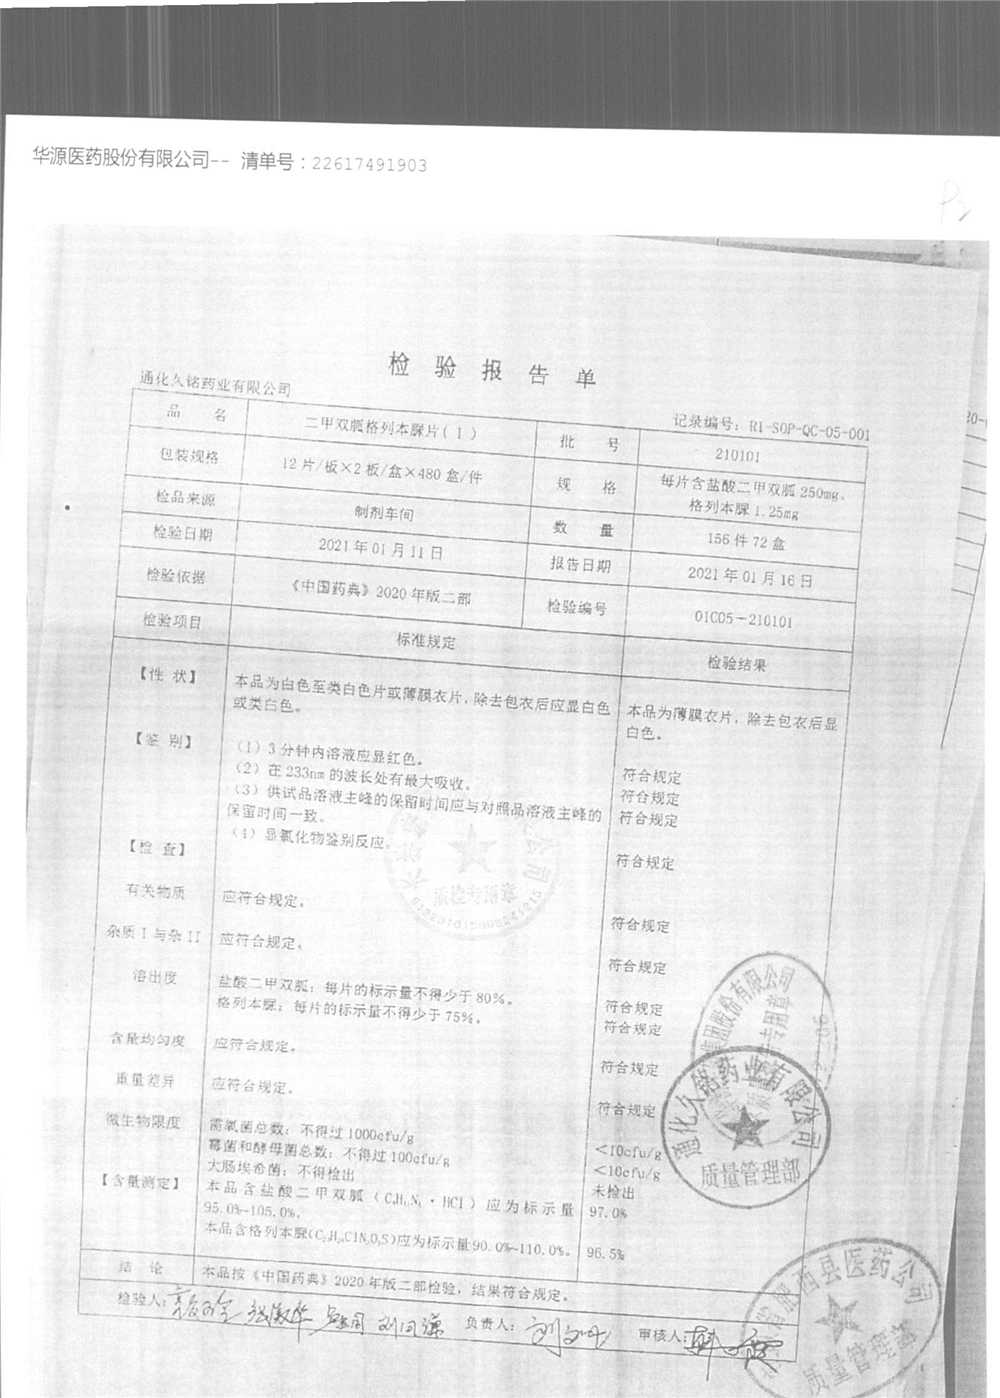 华源医药股份有限公司-- 清单号：22617491903
P3
检 验 报 告 单
通化久铭药业有限公司
记录编号：R1-SOP-QC-05-001
品 名 二甲双胍格列本脲片(Ⅰ) 批 号 210101
包装规格 12片/板×2板/盒×480盒/件 规 格 每片含盐酸二甲双胍250mg、
格列本脲1.25mg
检品来源 制剂车间 数 量 156件72盒
检验日期 2021年01月11日 报告日期 2021年01月16日
检验依据 《中国药典》2020年版二部 检验编号 01C05-210101
检验项目 标准规定 检验结果
【性 状】 本品为白色至类白色片或薄膜衣片，除去包衣后应显白色 本品为薄膜衣片，除去包衣后显
或类白色。 白色。
【鉴 别】
（1）3分钟内溶液应显红色。 符合规定
（2）在233nm的波长处有最大吸收。 符合规定
（3）供试品溶液主峰的保留时间应与对照品溶液主峰的 符合规定
保留时间一致。
（4）显氯化物鉴别反应。 符合规定
【检 查】
有关物质 应符合规定。 符合规定
杂质I与杂II 应符合规定。 符合规定
溶出度 盐酸二甲双胍：每片的标示量不得少于80%。 符合规定
格列本脲：每片的标示量不得少于75%。 符合规定
含量均匀度 应符合规定。 符合规定
重量差异 应符合规定。 符合规定
微生物限度 需氧菌总数：不得过1000cfu/g <10cfu/g
霉菌和酵母菌总数：不得过100cfu/g <10cfu/g
大肠埃希菌：不得检出 未检出
【含量测定】 本品含盐酸二甲双胍（C₄H₁₁N₅·HCl）应为标示量 97.0%
95.0%-105.0%。
本品含格列本脲(C₂₃H₂₈ClN₃O₅S)应为标示量90.0%-110.0%。 96.5%
结 论 本品按《中国药典》2020年版二部检验，结果符合规定。
检验人： 负责人： 审核人：
质检专用章
集团股份有限公司
专用章
通化久铭药业有限公司
质量管理部
省肥西县医药公司
质量管理